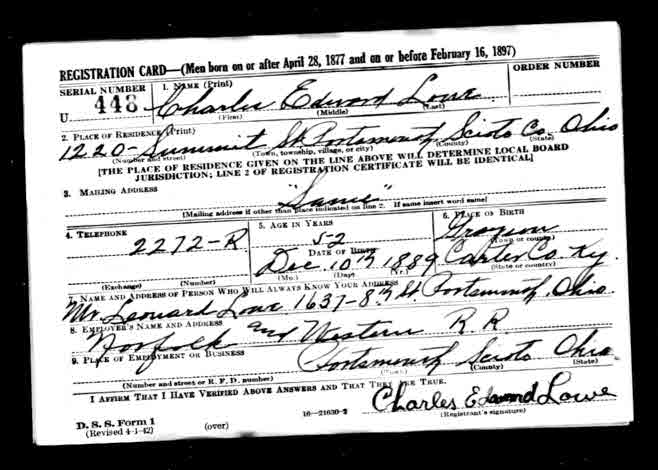 REGISTRATION CARD—(Men born on or after April 28, 1877 and on or before February 16, 1897)
SERIAL NUMBER 1. NAME (Print) ORDER NUMBER
U 448 Charles Edward Lowe
(First) (Middle) (Last)
2. PLACE OF RESIDENCE (Print)
1220- Summit St. Portsmouth Scioto Co. Ohio
(Number and street) (Town, township, village, or city) (County) (State)
[THE PLACE OF RESIDENCE GIVEN ON THE LINE ABOVE WILL DETERMINE LOCAL BOARD
JURISDICTION; LINE 2 OF REGISTRATION CERTIFICATE WILL BE IDENTICAL]
3. MAILING ADDRESS
"Same"
[Mailing address if other than place indicated on line 2. If same insert word same]
4. TELEPHONE 5. AGE IN YEARS 6. PLACE OF BIRTH
2272-R 52 Grayson
DATE OF BIRTH (Town or county)
Dec. 10th 1889 Carter Co. Ky.
(Exchange) (Number) (Mo.) (Day) (Yr.) (State or country)
7. NAME AND ADDRESS OF PERSON WHO WILL ALWAYS KNOW YOUR ADDRESS
Mr. Leonard Lowe 1637-8th St. Portsmouth, Ohio.
8. EMPLOYER'S NAME AND ADDRESS
Norfolk and Western R.R.
9. PLACE OF EMPLOYMENT OR BUSINESS
Portsmouth Scioto Ohio.
(Number and street or R. F. D. number) (Town) (County) (State)
I AFFIRM THAT I HAVE VERIFIED ABOVE ANSWERS AND THAT THEY ARE TRUE.
Charles Edward Lowe
D. S. S. Form 1 16—21630-2 (Registrant's signature)
(Revised 4-1-42) (over)